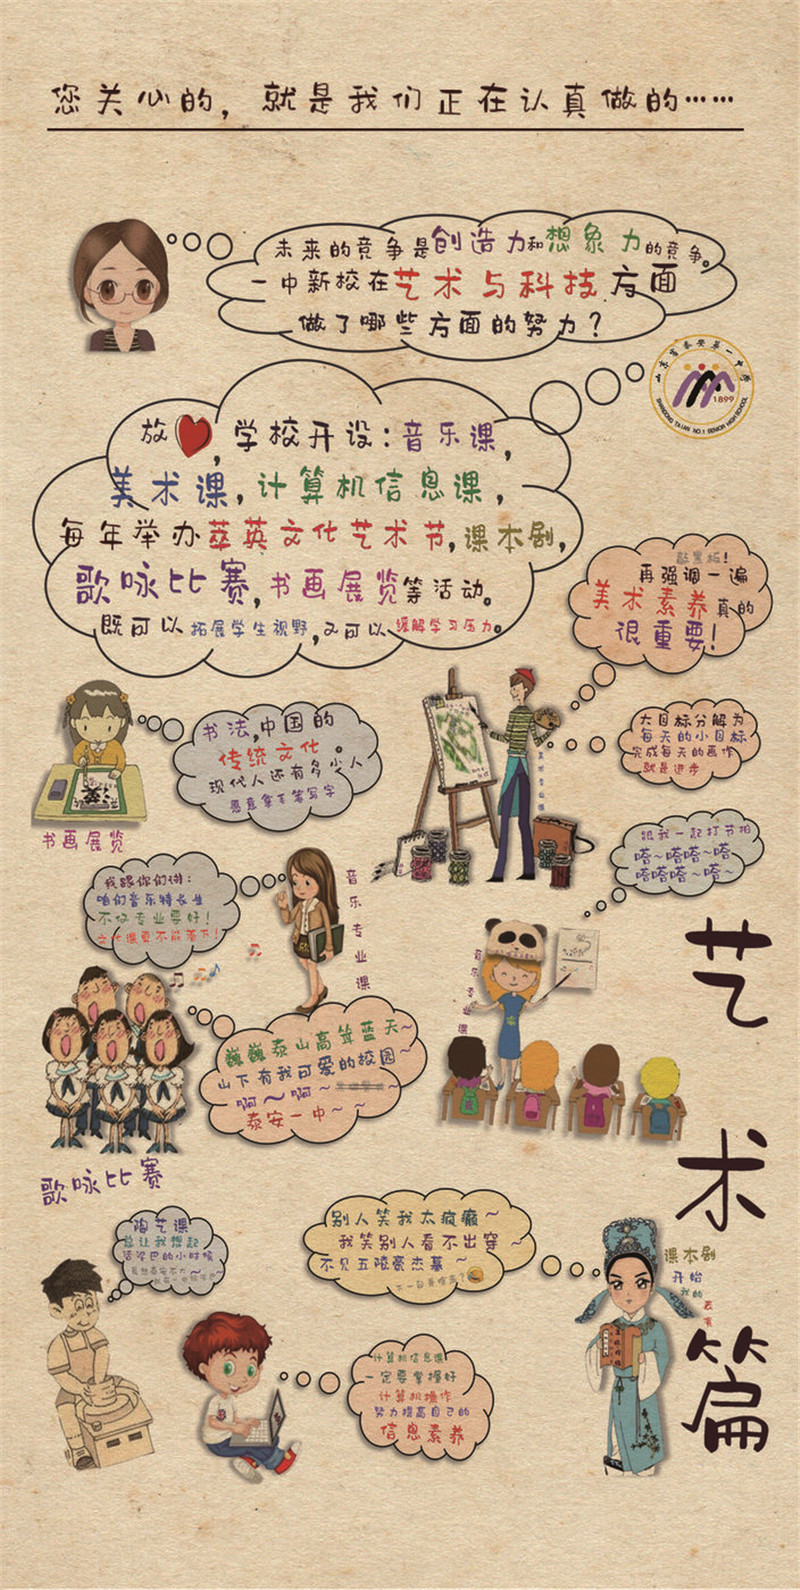 您关心的，就是我们正在认真做的……
未来的竞争是创造力和想象力的竞争。
一中新校在艺术与科技方面
做了哪些方面的努力？
山东省泰安第一中学
1899
SHANDONG TAIAN NO.1 SENIOR HIGH SCHOOL
放，学校开设：音乐课，
美术课，计算机信息课，
每年举办萃英文化艺术节，课本剧，
歌咏比赛，书画展览等活动。
既可以拓展学生视野，又可以缓解学习压力。
敲黑板！
再强调一遍
美术素养真的
很重要！
书法，中国的
传统文化。
现代人还有多少人
愿意拿毛笔写字
书画展览
大目标分解为
每天的小目标
完成每天的画作
就是进步
美术专业课
跟我一起打节拍
嗒~嗒嗒~嗒
嗒嗒嗒~嗒~
我跟你们讲：
咱们音乐特长生
不仅专业要好！
文化课更不能落下！
音乐专业课
音乐专业课
巍巍泰山高耸蓝天~
山下有我可爱的校园~
啊~啊~
泰安一中~~
歌咏比赛
艺术篇
陶艺课
总让我想起
活泥巴的小时候
别人笑我太疯癫~
我笑别人看不出穿~
不见五陵豪杰墓~
课本剧
开始
我的
表演
计算机信息课
一定要掌握好
计算机操作
努力提高自己的
信息素养